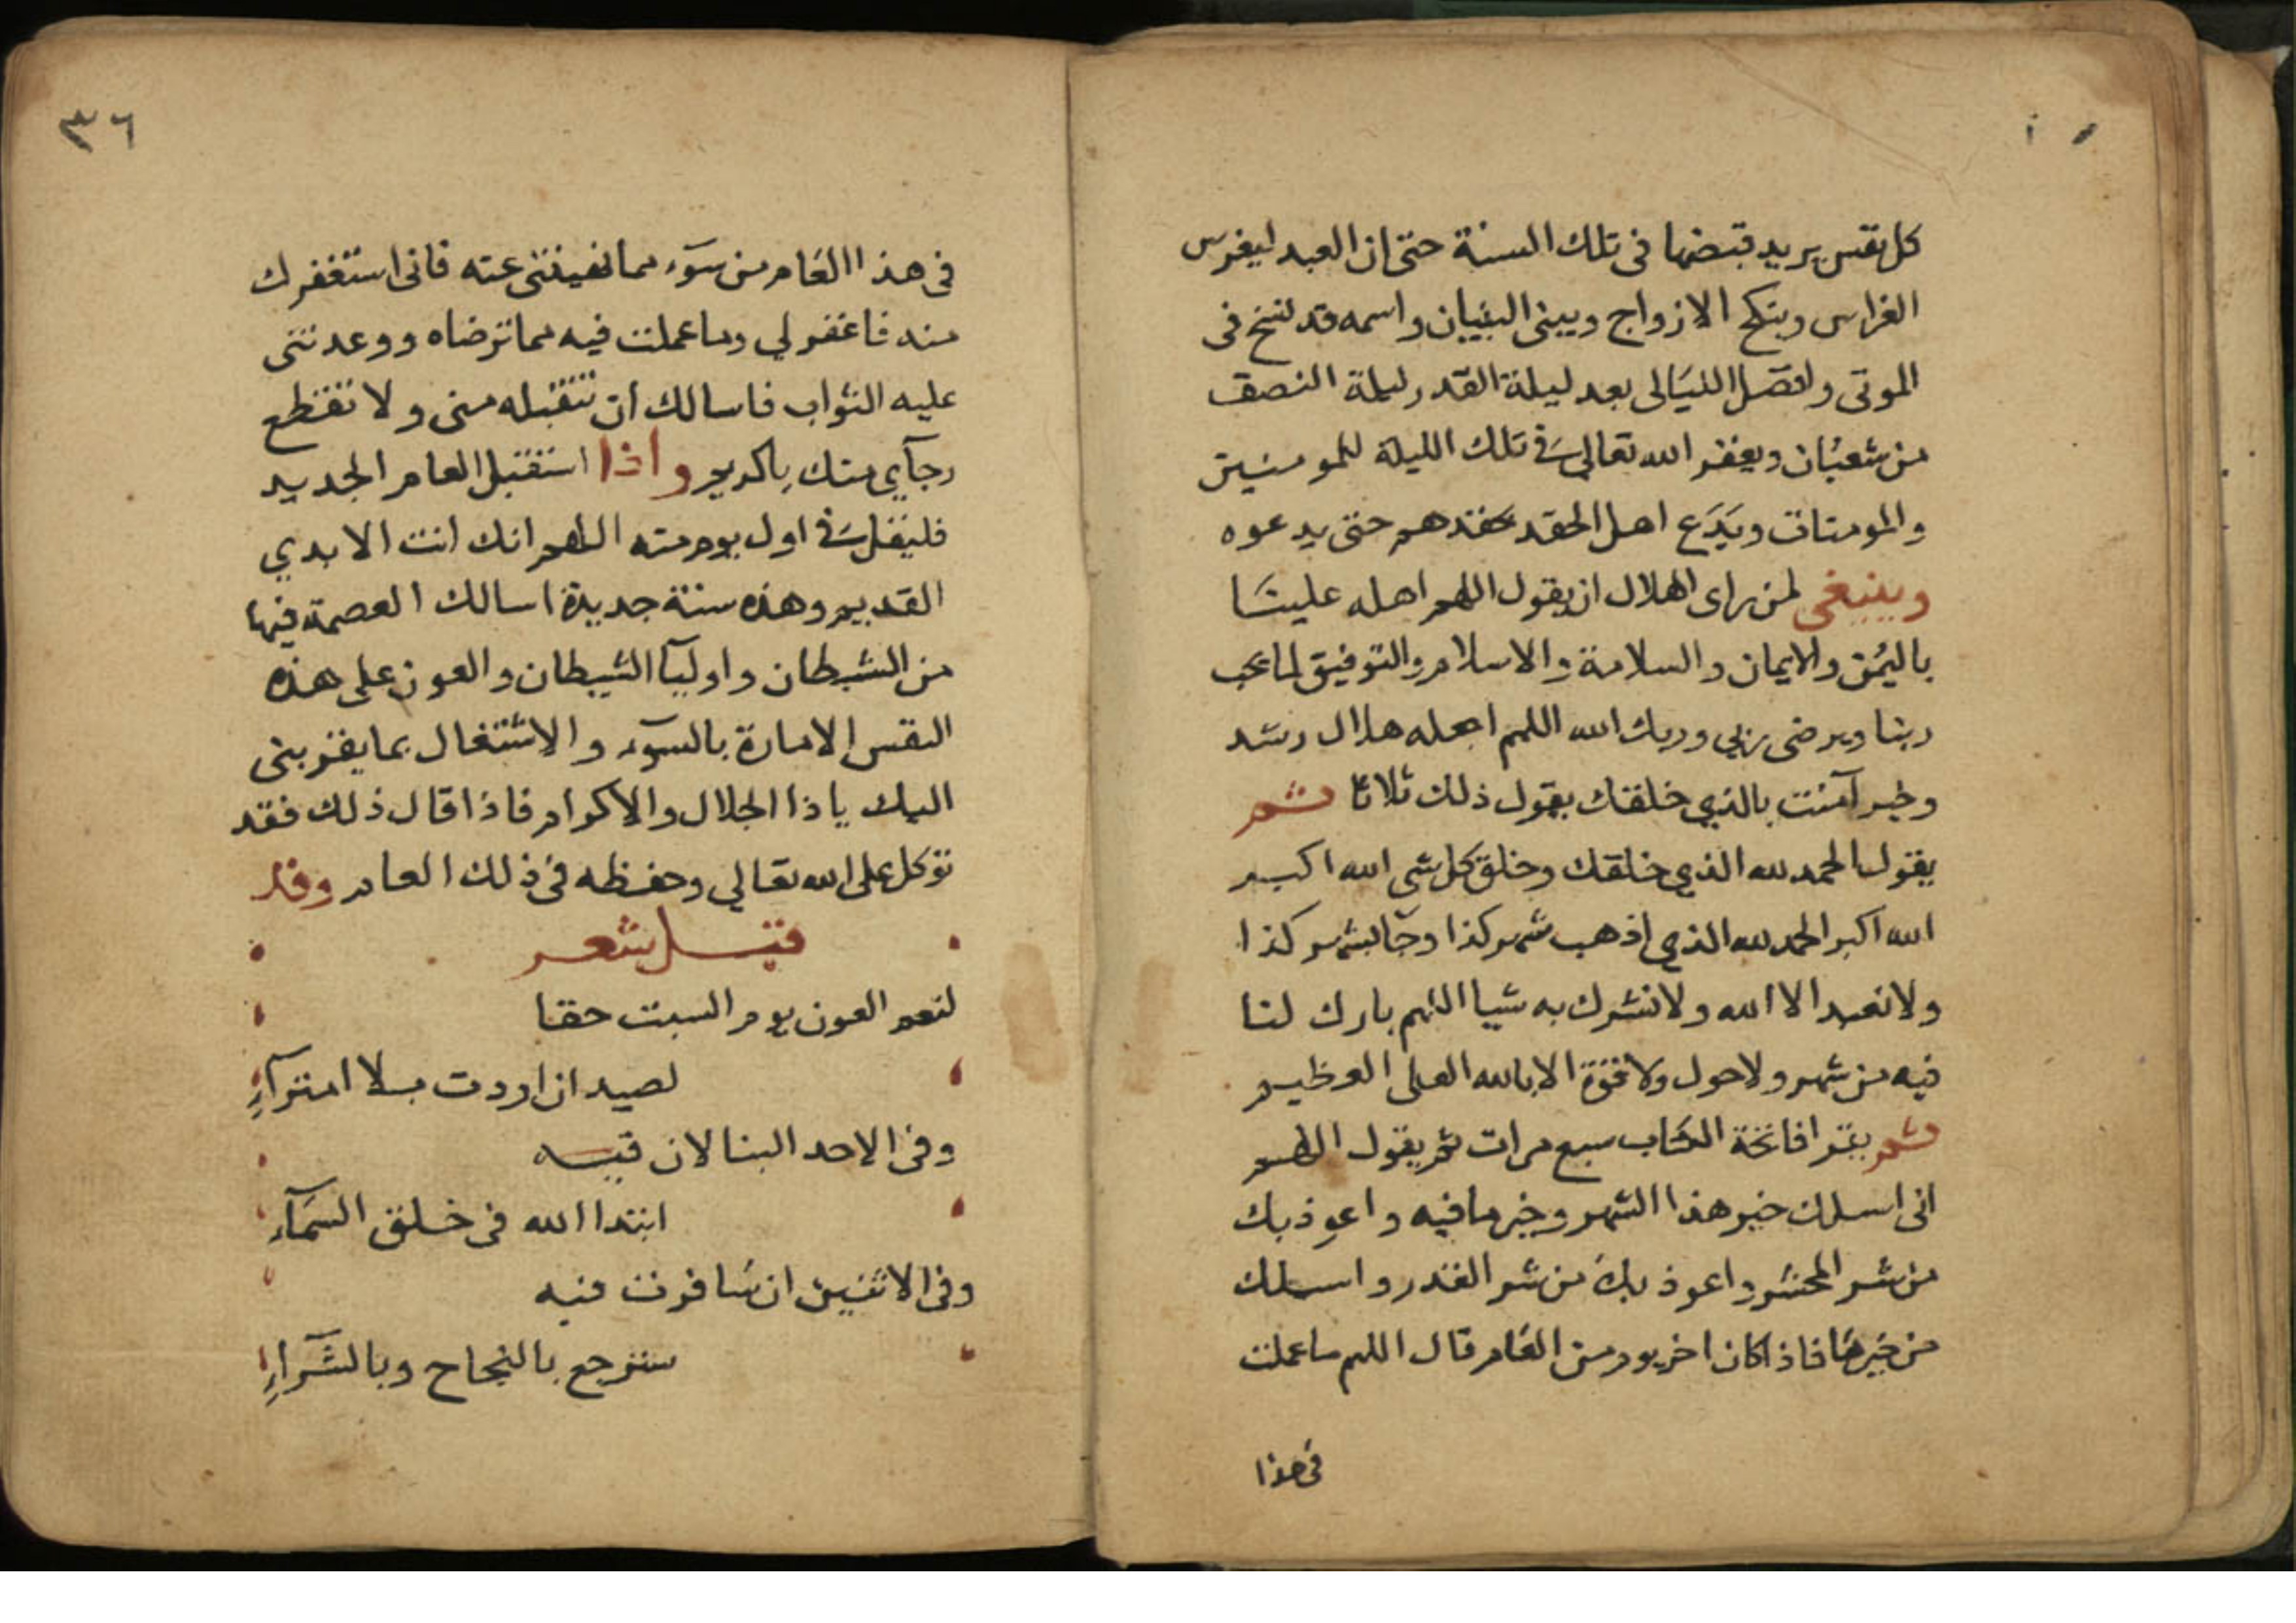 كل نفس يريد قبضها فى تلك السنة حتى ان العبد ليغرس
الغراس وينكح الازواج ويبنى البنيان واسمه قد نسخ فى
الموتى وافضل الليالى بعد ليلة القدر ليلة النصف
من شعبان ويغفر الله تعالى فى تلك الليلة للمومنين
والمومنات ويدع اهل الحقد بحقدهم حتى يدعوه
وينبغى لمن راى الهلال ان يقول اللهم اهله علينا
باليمن والايمان والسلامة والاسلام والتوفيق لما تحب
ربنا ويرضى ربي وربك الله اللهم اجعله هلال رشد
وخير آمنت بالذي خلقك يقول ذلك ثلاثا ثم
يقول الحمد لله الذي خلقك وخلق كل شى الله اكبر
الله اكبر الحمد لله الذي اذهب شهر كذا وجآ بشهر كذا
ولا نعبد الا الله ولا نشرك به شيا اللهم بارك لنا
فيه من شهر ولا حول ولا قوة الا بالله العلى العظيم
ثم يقرا فاتحة الكتاب سبع مرات ثم يقول اللهم
انى اسلك خير هذا الشهر وخير ما فيه واعوذ بك
من شر المحشر واعوذ بك من شر القدر واسلك
من خيرها فاذا كان اخر يوم من العام قال اللهم ما عملت
فى هذا
٣٦
فى هذا العام من سوٓء مما نهيتنى عنه فانى استغفرك
منه فاغفر لي وما عملت فيه مما ترضاه ووعدتنى
عليه الثواب فاسالك ان تتقبله منى ولا تقطع
رجآي منك ياكريم واذا استقبل العام الجديد
فليقل فى اول يوم منه اللهم انك انت الابدي
القديم وهذه سنة جديدة اسالك العصمة فيها
من الشيطان واوليآ الشيطان والعون على هذه
النفس الامارة بالسوٓء والاشتغال بما يقربنى
اليك ياذا الجلال والاكرام فاذا قال ذلك فقد
توكل على الله تعالي وحفظه فى ذلك العام وقد
قيل شعر
لنعم العون يوم السبت حقا
لصيد ان اردت بلا امترآءِ
وفى الاحد البنا لان فيه
ابتدا الله فى خلق السمآء
وفى الاثنين ان سافرت فيه
سترجع بالنجاح وبالثرآءِ